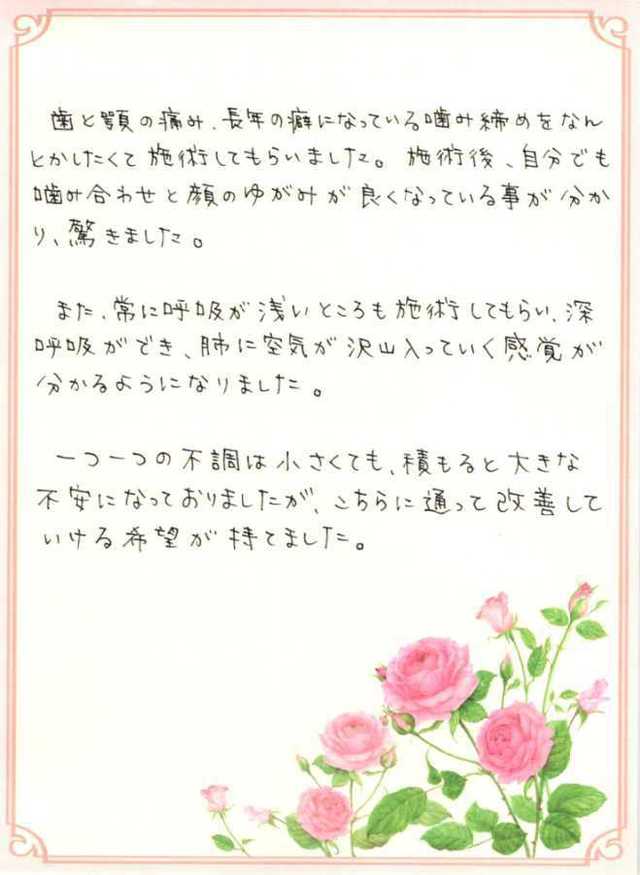 歯と顎の痛み、長年の癖になっている噛み締めをなん
とかしたくて施術してもらいました。施術後、自分でも
噛み合わせと顔のゆがみが良くなっている事が分か
り、驚きました。
また、常に呼吸が浅いところも施術してもらい、深
呼吸ができ、肺に空気が沢山入っていく感覚が
分かるようになりました。
一つ一つの不調は小さくても、積もると大きな
不安になっておりましたが、こちらに通って改善して
いける希望が持てました。